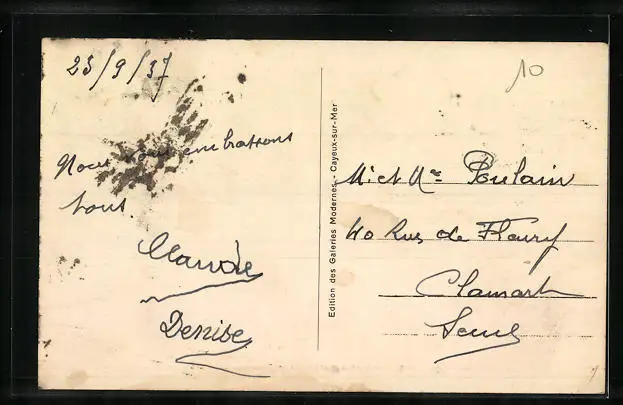 23/9/37
10
Nous vous embrassons
tous
Claude
Denise
Edition des Galeries Modernes - Cayeux-sur-Mer
M. et Mme Poulain
40 Rue de Fleury
Clamart
Seine